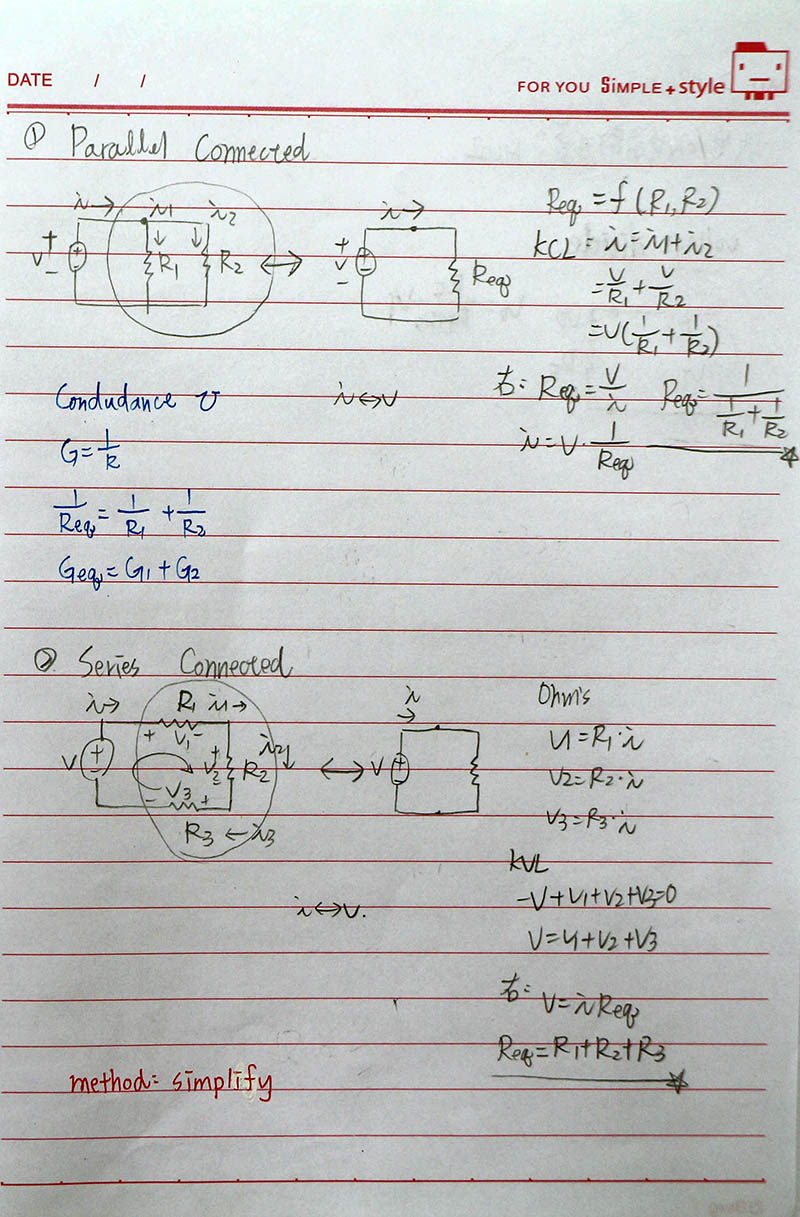 DATE / /
FOR YOU SiMPLE + style
① Parallel Connected
i→ i1 i2
+ v − + − R1 R2 ⟷
i→
+ v − + − Req
Req = f (R1, R2)
KCL = i = i1 + i2
= V/R1 + V/R2
= V(1/R1 + 1/R2)
右: Req = V/i Req = 1/(1/R1 + 1/R2)
i = V · 1/Req
i ↔ v
Condudance ʊ
G = 1/R
1/Req = 1/R1 + 1/R2
Geq = G1 + G2
② Series Connected
i→ R1 i1→
+ V1 −
V + − + V2 − R2 i2↓ ⟷
− V3 +
R3 ← i3
i →
V + −
Ohm's
V1 = R1 · i
V2 = R2 · i
V3 = R3 · i
KVL
-V + V1 + V2 + V3 = 0
V = V1 + V2 + V3
i ↔ V.
右: V = i Req
Req = R1 + R2 + R3
method: simplify